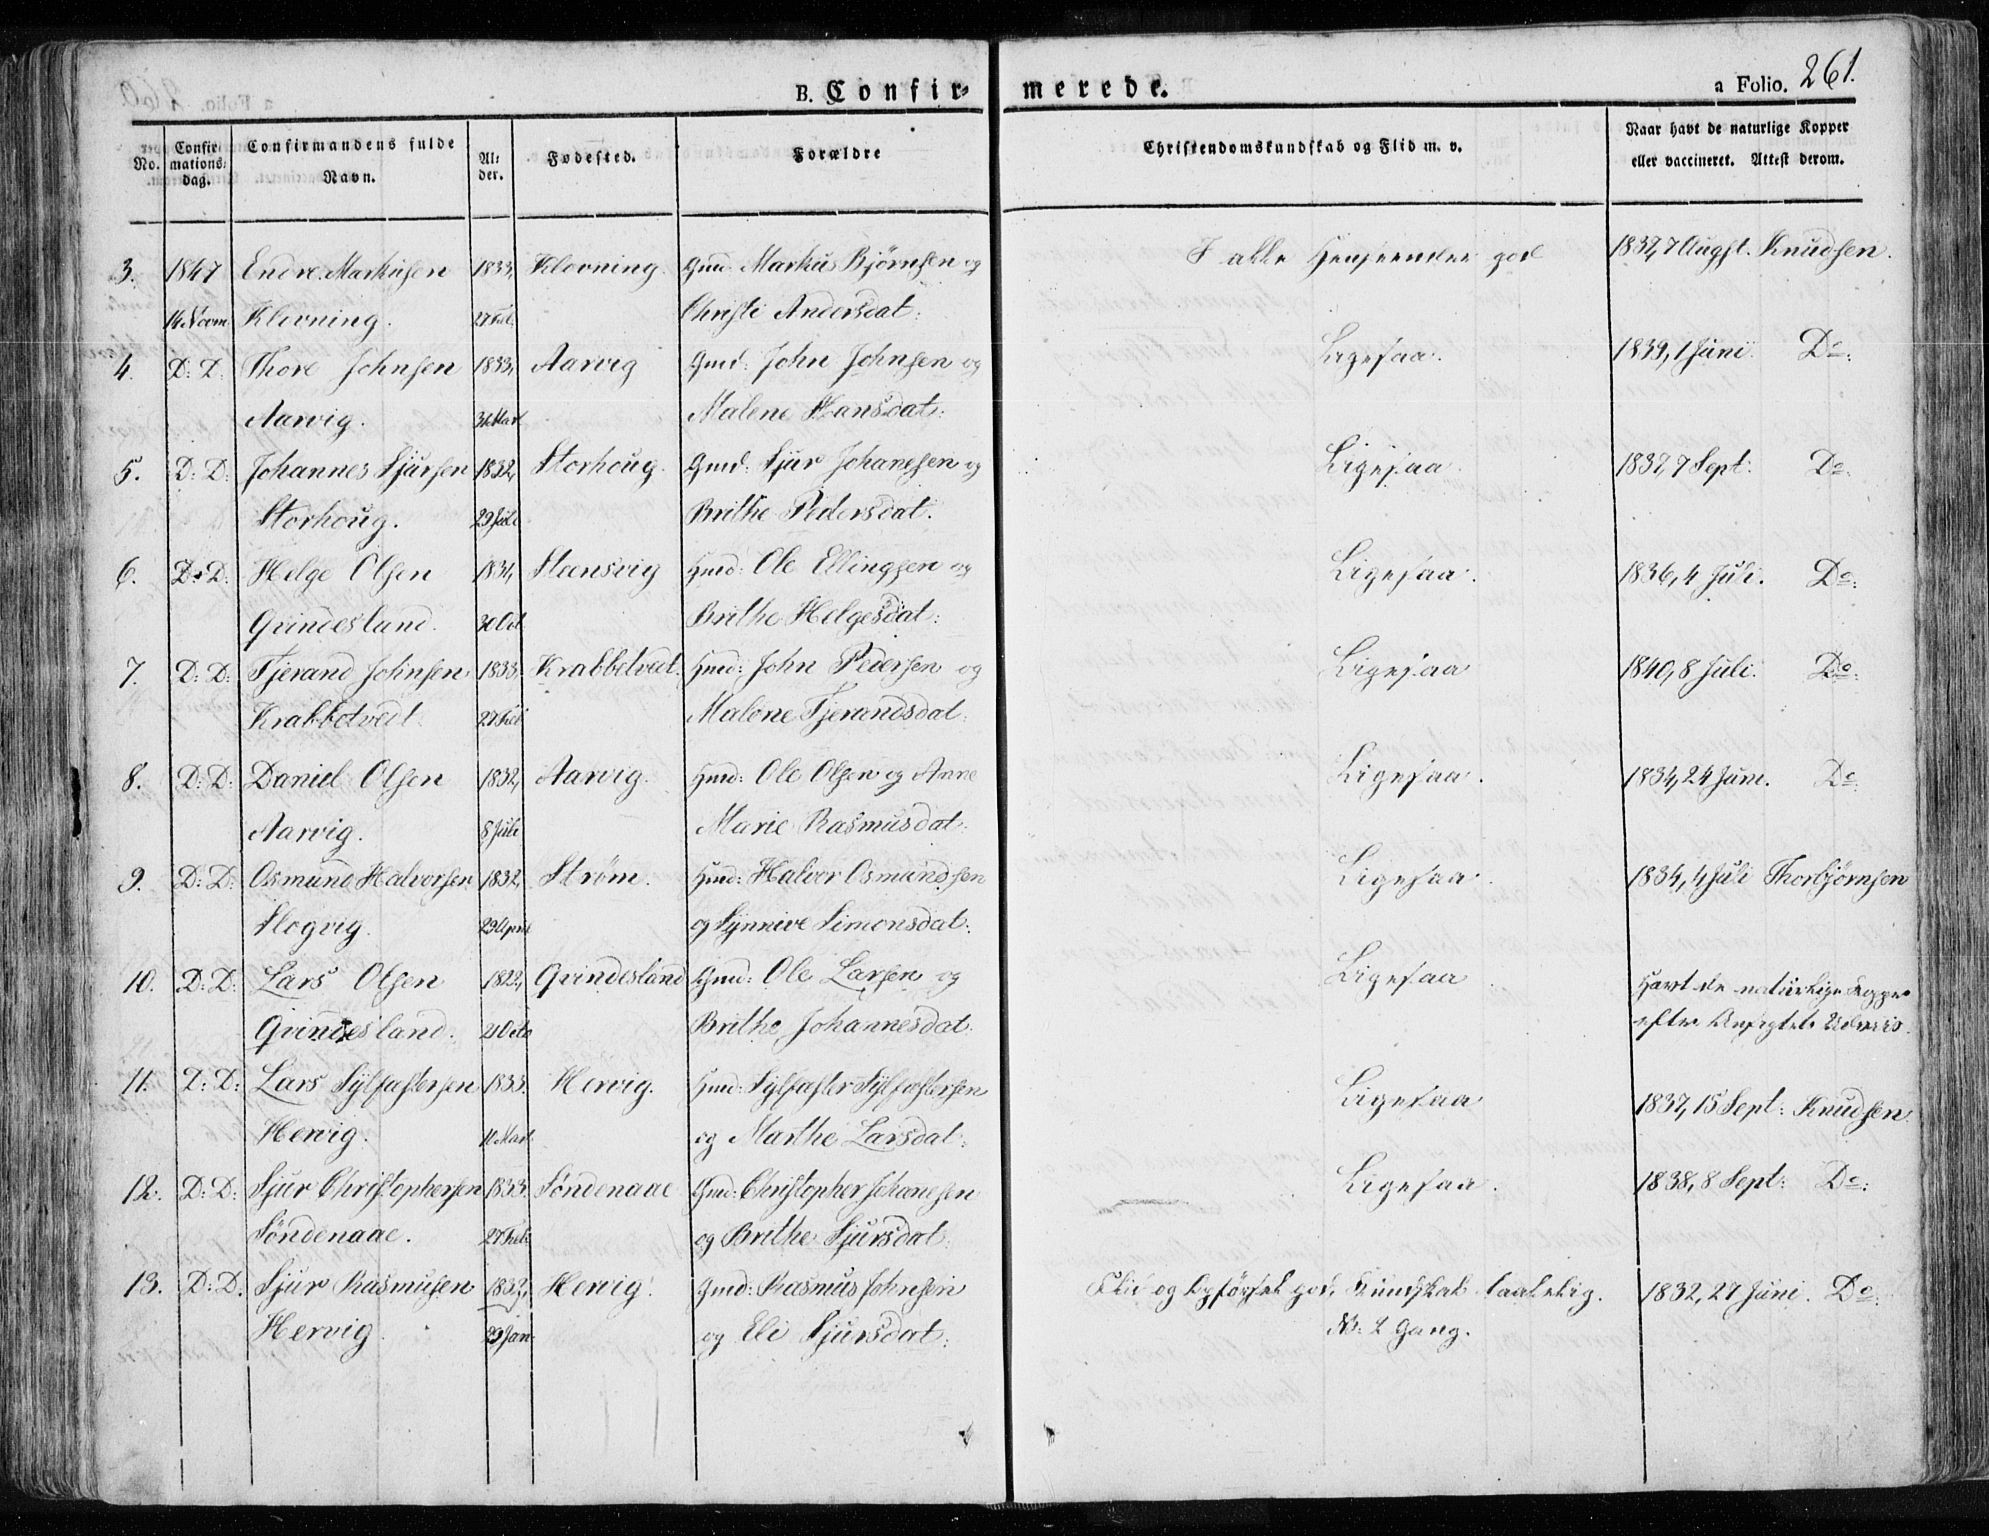 B. Confir- merede. a Folio. 261.
No. Confirmations-dag. Confirmandens fulde Navn. Alder. Fødested. Forældre Christendomskundskab og Flid m. v. Naar havt de naturlige Kopper eller vaccineret. Attest derom.
3. 1847 Endre Markusen 1833, Klovning. Gmd. Markus Bjørnsen og I alle Henseender god 1832, 7 Augst. Knudsen.
14 Novm Klovning. 27 Feb. Christi Andersdat:
4. D: D: Thore Johnsen 1833, Aarvig Gmd: John Johnsen og Ligesaa. 1839, 1 Juni. Do:
Aarvig. 31 Mart Malene Hansdat:
5. D: D: Johannes Sjursen 1832, Storhoug. Gmd: Sjur Johanesen og Ligesaa. 1837, 7 Sept: Do:
Storhoug. 29 Juli Brithe Pedersdat.
6. D: D. Helge Olsen 1831, Steensvig Hmd: Ole Ellingsen og Ligesaa. 1836, 4 Juli. Do:
Grindesland. 30 Oct Brithe Helgesdat:
7. D: D: Tjerand Johnsen 1833. Krabbetveit. Hmd: John Pedersen og Ligesaa 1840, 8 Juli. Do:
Krabbetveit. 27 Feb Malene Tjerandsdat.
8. D: D: Daniel Olsen 1832, Aarvig. Hmd: Ole Olsen og Anne Ligesaa. 1834, 24 Juni. Do:
Aarvig. 8 Juli Marie Rasmusdat.
9. D: D: Osmund Halvorsen 1832, Strøm. Hmd: Halvor Osmundsen Ligesaa. 1834, 4 Juli Thorbjørnsen
Slogvig. 29 April og Synnive Simonsdat:
10. D: D: Lars Olsen Grindesland Gmd: Ole Larsen og Ligesaa Havt de naturlige Kopper
Grindesland. Brithe Johannesdat. efter Ansigtets Udvis.
11. D: D: Lars Sylfastersen 1833. Hervig. Hmd: Sylfaster Sylfastersen Ligesaa 1837, 15 Sept: Knudsen.
Hervig. 11 Mart og Marthe Larsdat:
12. D: D: Sjur Christophersen 1833. Søndenaae Gmd: Christopher Johanesen Ligesaa. 1838, 8 Sept: Do:
Søndenaae. 27 Feb og Brithe Sjursdat.
13. D: D. Sjur Rasmusen Hervig. Gmd: Rasmus Johnsen Flid og Opførsel god, Kundskab taalelig. 1832, 27 Juni. Do:
Hervig. 29 Jan. og Eli Sjursdat: NB: 2 Gang.